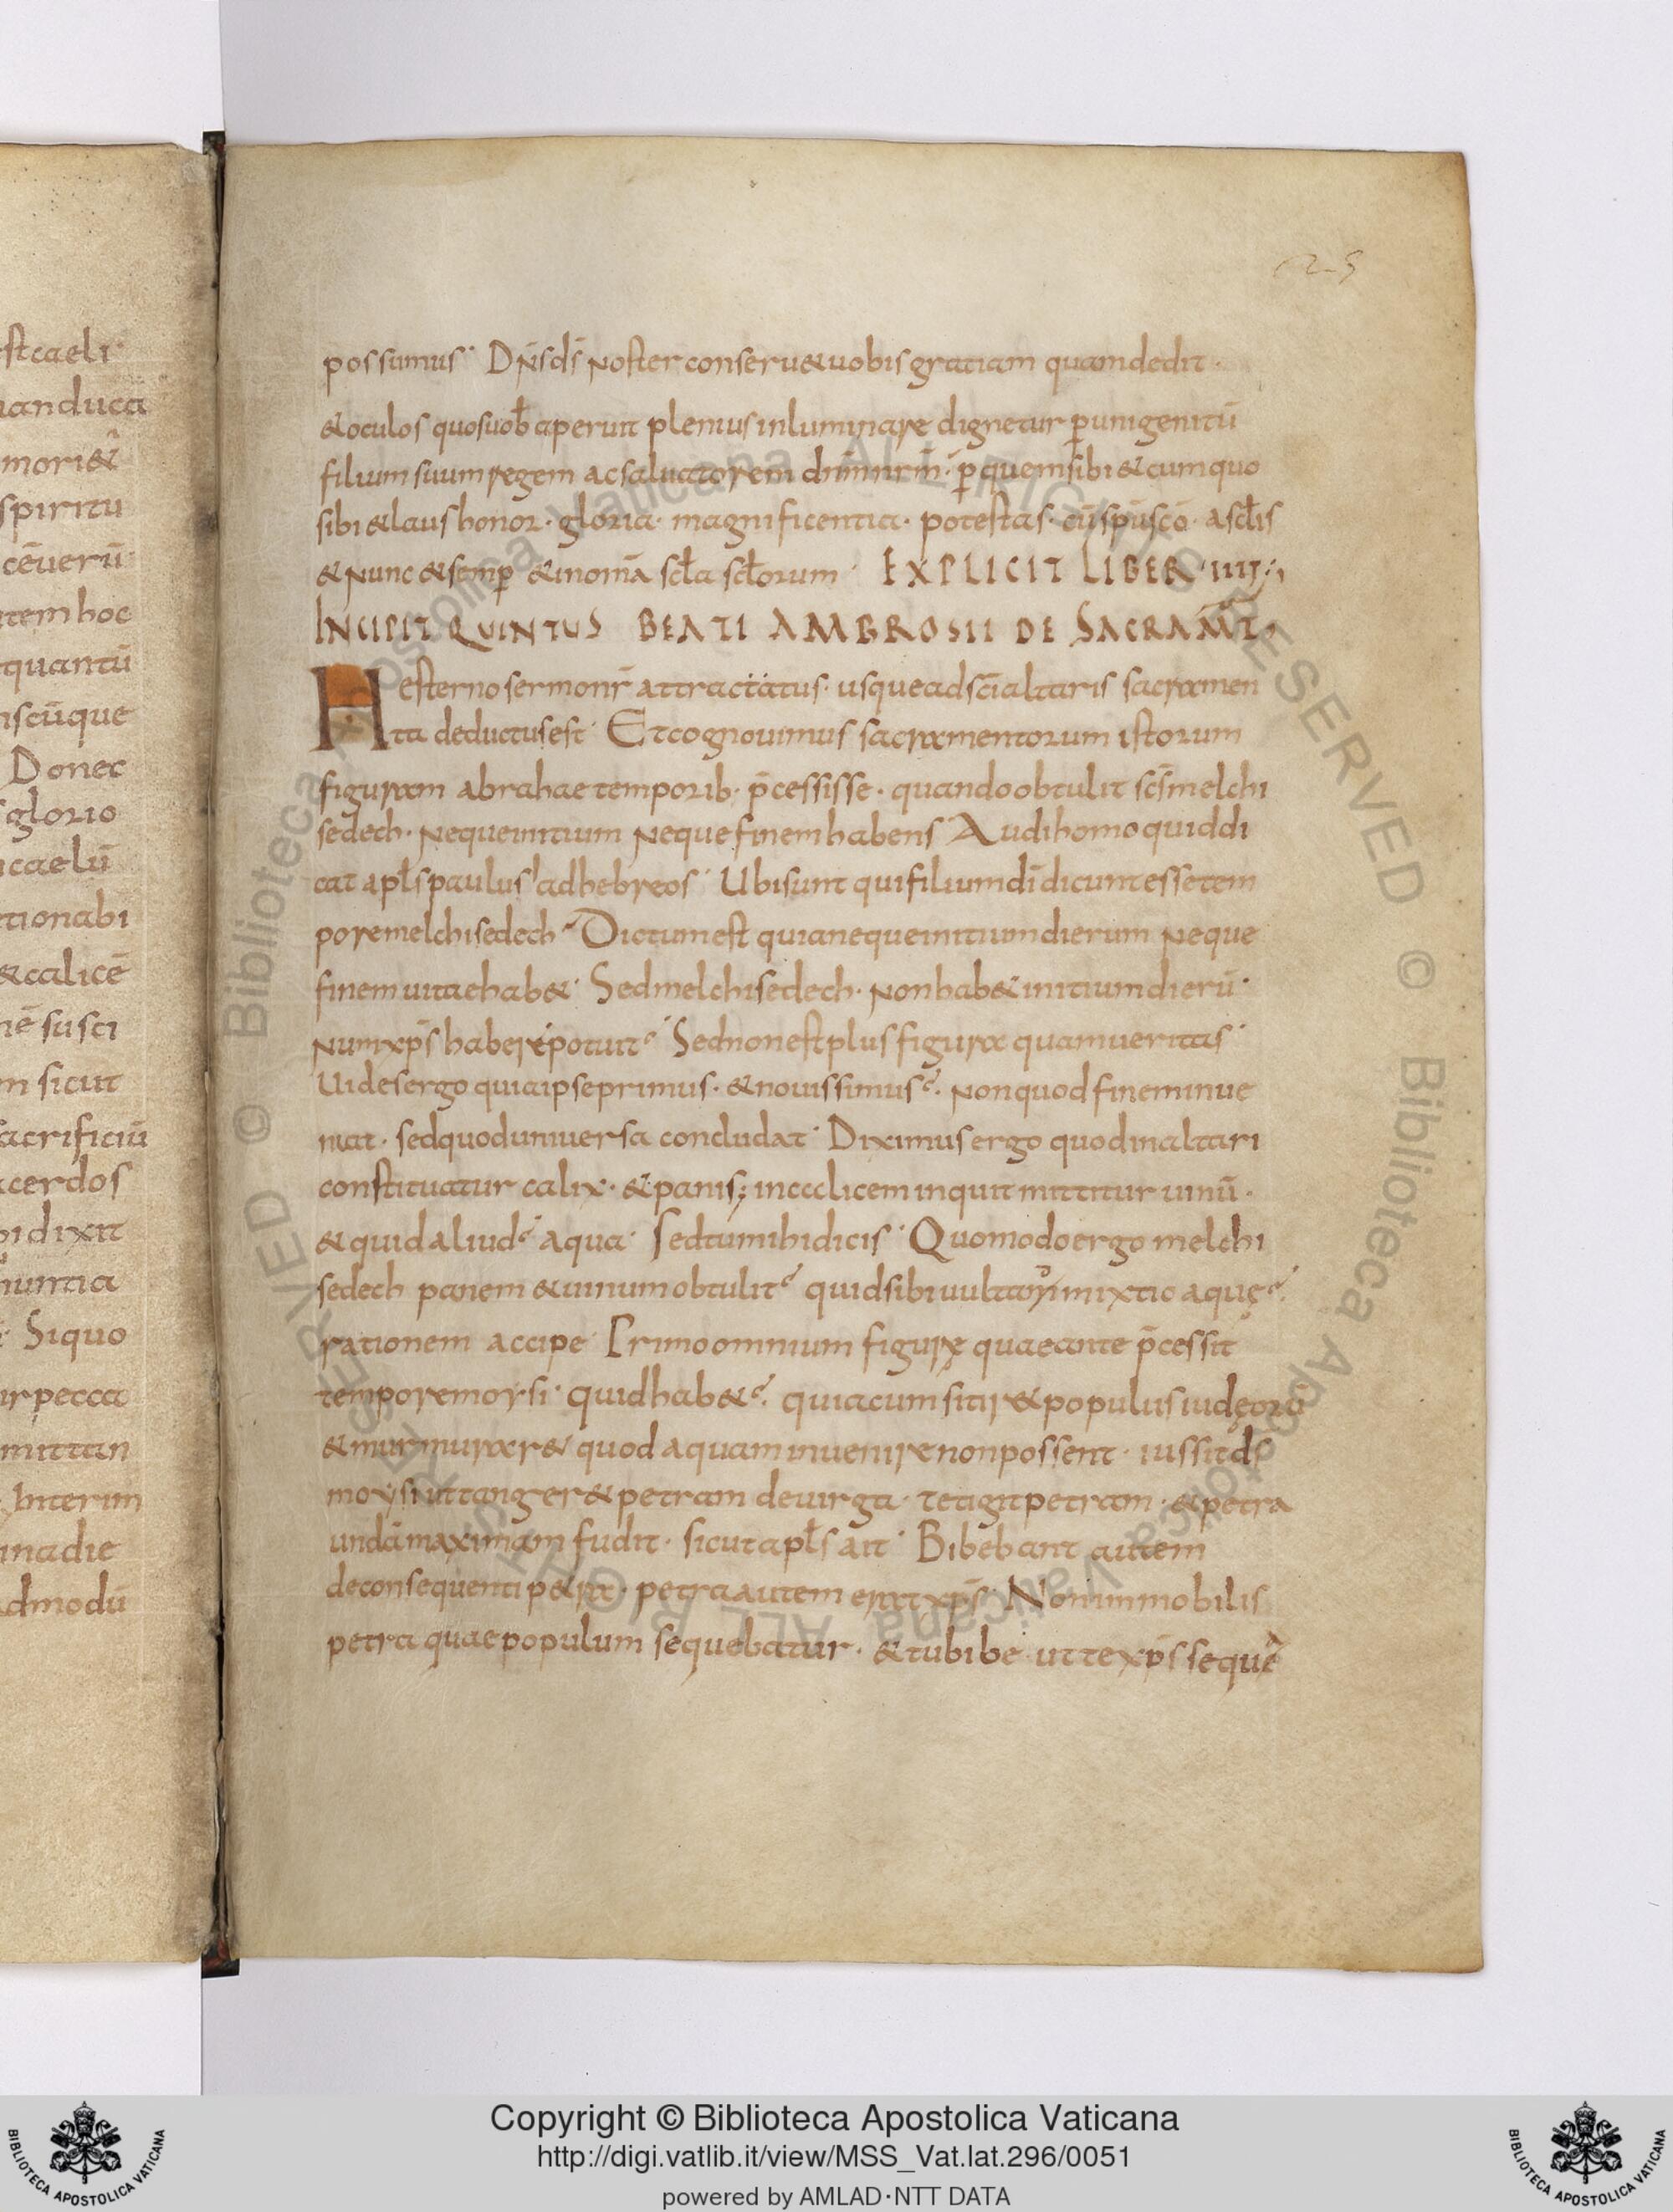 est caeli·
manducā
mori&
spiritu
cēuerū
item hoc
quantū
iscūque
Donec
glorio
caelū
tionabi
&calicē
nē susci
m sicut
sacrificiū
cerdos
dixit
nuntia
Siquo
ur pecca
mittan
Interim
inadie
admodū
25
possumus· Dn̄s ds̄ noster conseru& uobis gratiam quam dedit·
& oculos quos uob̄ aperuit plenius inluminare dignetur p̄ unigenitū
filium suum regem ac saluatorem dn̄m nr̄m· p̄ quem sibi & cum quo
sibi & laus honor· gloria· magnificentia· potestas· cū sp̄u sc̄o· a scl̄is
& nunc & semp̄ & in om̄a scl̄a scl̄orum· EXPLICIT LIBER· IIII·
INCIPIT QUINTUS BEATI AMBROSII DE SACRAM̄T·
Hesterno sermon̄r attractatus· usque ad sc̄i altaris sacramen
ta deductus est· Et cognouimus sacramentorum istorum
figuram abrahae temporib· p̄cessisse· quando obtulit sc̄s melchi
sedech· neque initium neque finem habens· Audi homo quid di
cat apl̄s paulus ad hebreos· Ubi sunt qui filium dī dicunt esse tem
pore melchisedech· Dictum est quia neque initium dierum neque
finem uitae hab&· Sed melchisedech· non hab& initium dierū·
Num xp̄s habere potuit· Sed non est plus figura quam ueritas·
Uides ergo quia ipse primus· & nouissimus ē· non quod finem inue
niat· sed quod uniuersa concludat· Diximus ergo quod in altari
constituatur calix· & panis; in calicem inquit mittitur uinū·
& quid aliud· aqua· Sed tu mihi dicis· Quomodo ergo melchi
sedech panem & uinum obtulit· quid sibi uult admixtio aquę·
rationem accipe· Primo omnium figurę quae ante p̄cessit
tempore moysi· quid hab&· quia cum sitir& populus iudęorū
& murmurar& quod aquam inuenire non possent· iussit ds̄
moysi ut tanger& petram de uirga· tetigit petram· & petra
undā maximam fudit· sicut apl̄s ait· Bibebant autem
de consequenti p&ra· petra autem erat xp̄s· Non inmobilis
petra quae populum sequebatur· & tu bibe ut te xp̄s seque
Copyright © Biblioteca Apostolica Vaticana
http://digi.vatlib.it/view/MSS_Vat.lat.296/0051
powered by AMLAD·NTT DATA
BIBLIOTECA APOSTOLICA VATICANA
BIBLIOTECA APOSTOLICA VATICANA
© Biblioteca Apostolica Vaticana ALL RIGHTS RESERVED © Biblioteca Apostolica Vaticana ALL RIGHTS RESERVED